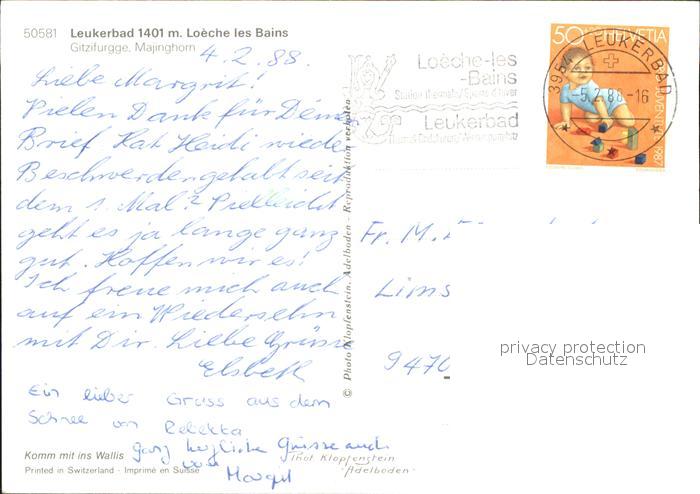 50581 Leukerbad 1401 m. Loèche les Bains
Gitzifurgge, Majinghorn
4.2.88.
Liebe Margrit!
Vielen Dank für Deinen
Brief. Hat Heidi wieder
Beschwerden gehabt seit
dem 1. Mal? Vielleicht
geht es ja lange ganz
gut. Hoffen wir es!
Ich freue mich auch
auf ein Wiedersehn
mit Dir. Liebe Grüsse
Elsbeth
Ein lieber Gruss aus dem
Schnee von Rebekka
ganz herzliche Grüsse auch
von Margrit
Komm mit ins Wallis
Printed in Switzerland - Imprimé en Suisse
Phot. Klopfenstein
"Adelboden"
© Photo Klopfenstein, Adelboden - Reproduktion verboten
Loèche-les
-Bains
Station thermale/Sports d'hiver
Leukerbad
50 HELVETIA
PRO JUVENTUTE 1987
3954 LEUKERBAD
-5.2.88.-16
Fr. M.
Lims
9470
privacy protection
Datenschutz